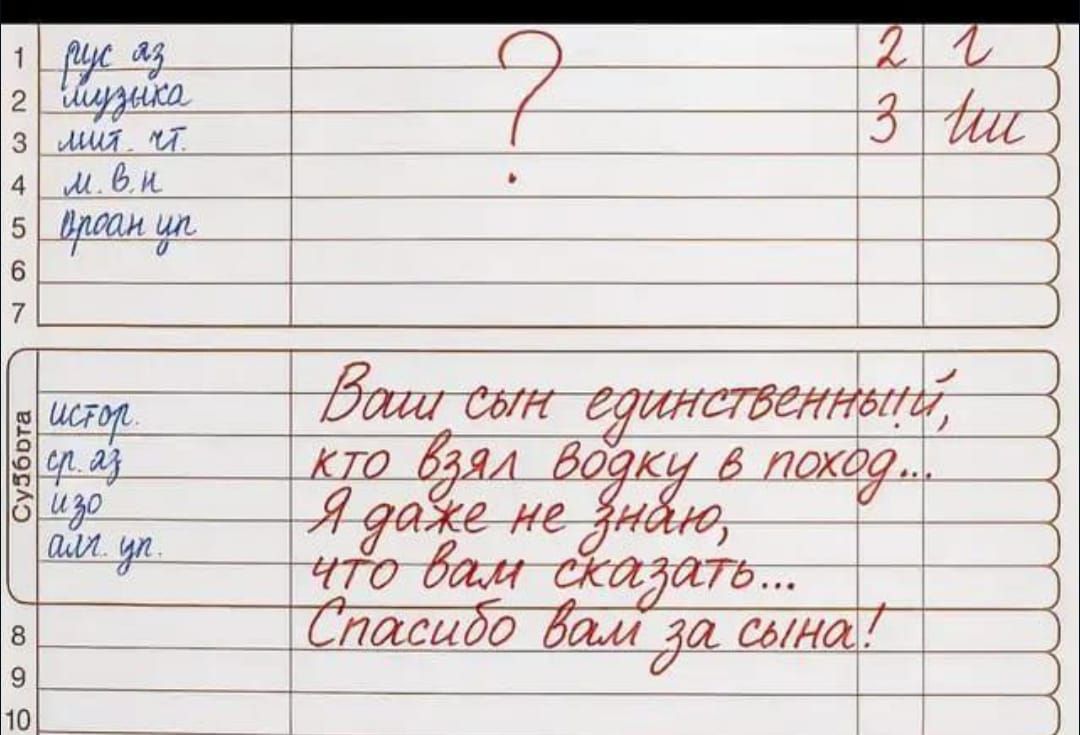 1 рус яз 2
2 музыка ?
3 лит. чт. 3
4 м. в. н
5
6
7
Суббота
истор.
ср. яз
изо
алг. уп.
Ваш сын единственный,
кто взял водку в поход...
Я даже не знаю,
что вам сказать...
Спасибо вам за сына!
8
9
10